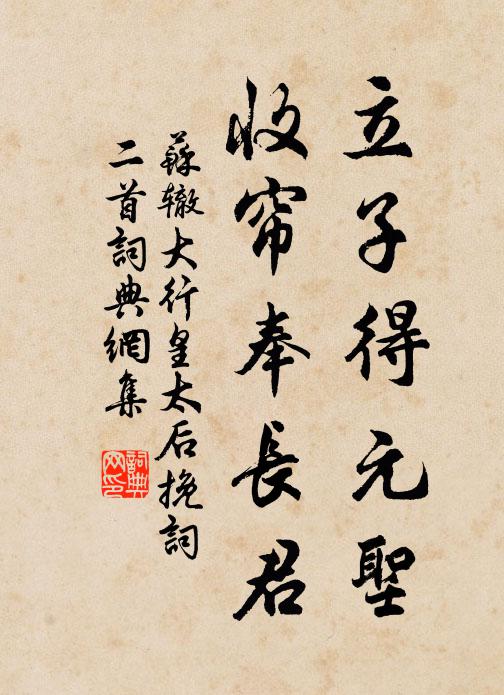 立子得元聖
收帘奉長君
蘇辙大行皇太后挽詞
二首詞典網集
詞典网印